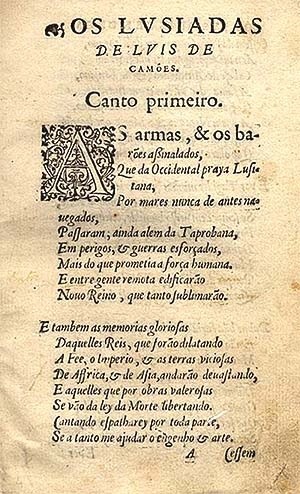 OS LVSIADAS
DE LVIS DE
CAMÕES.
Canto primeiro.
AS armas, & os ba-
rões aßinalados,
Que da Occidental praya Lusi-
tana,
Por mares nunca de antes na-
uegados,
Passaram, ainda alem da Taprobana,
Em perigos, & guerras esforçados,
Mais do que prometia a força humana.
E entre gente remota edificarão
Nouo Reino, que tanto sublimarão.
E tambem as memorias gloriosas
Daquelles Reis, que forão dilatando
A Fee, o Imperio, & as terras viciosas
De Affrica, & de Asia, andarão deuastando,
E aquelles que por obras valerosas
Se vão da ley da Morte libertando.
Cantando espalharey por toda parte,
Se a tanto me ajudar o engenho & arte.
A (essem